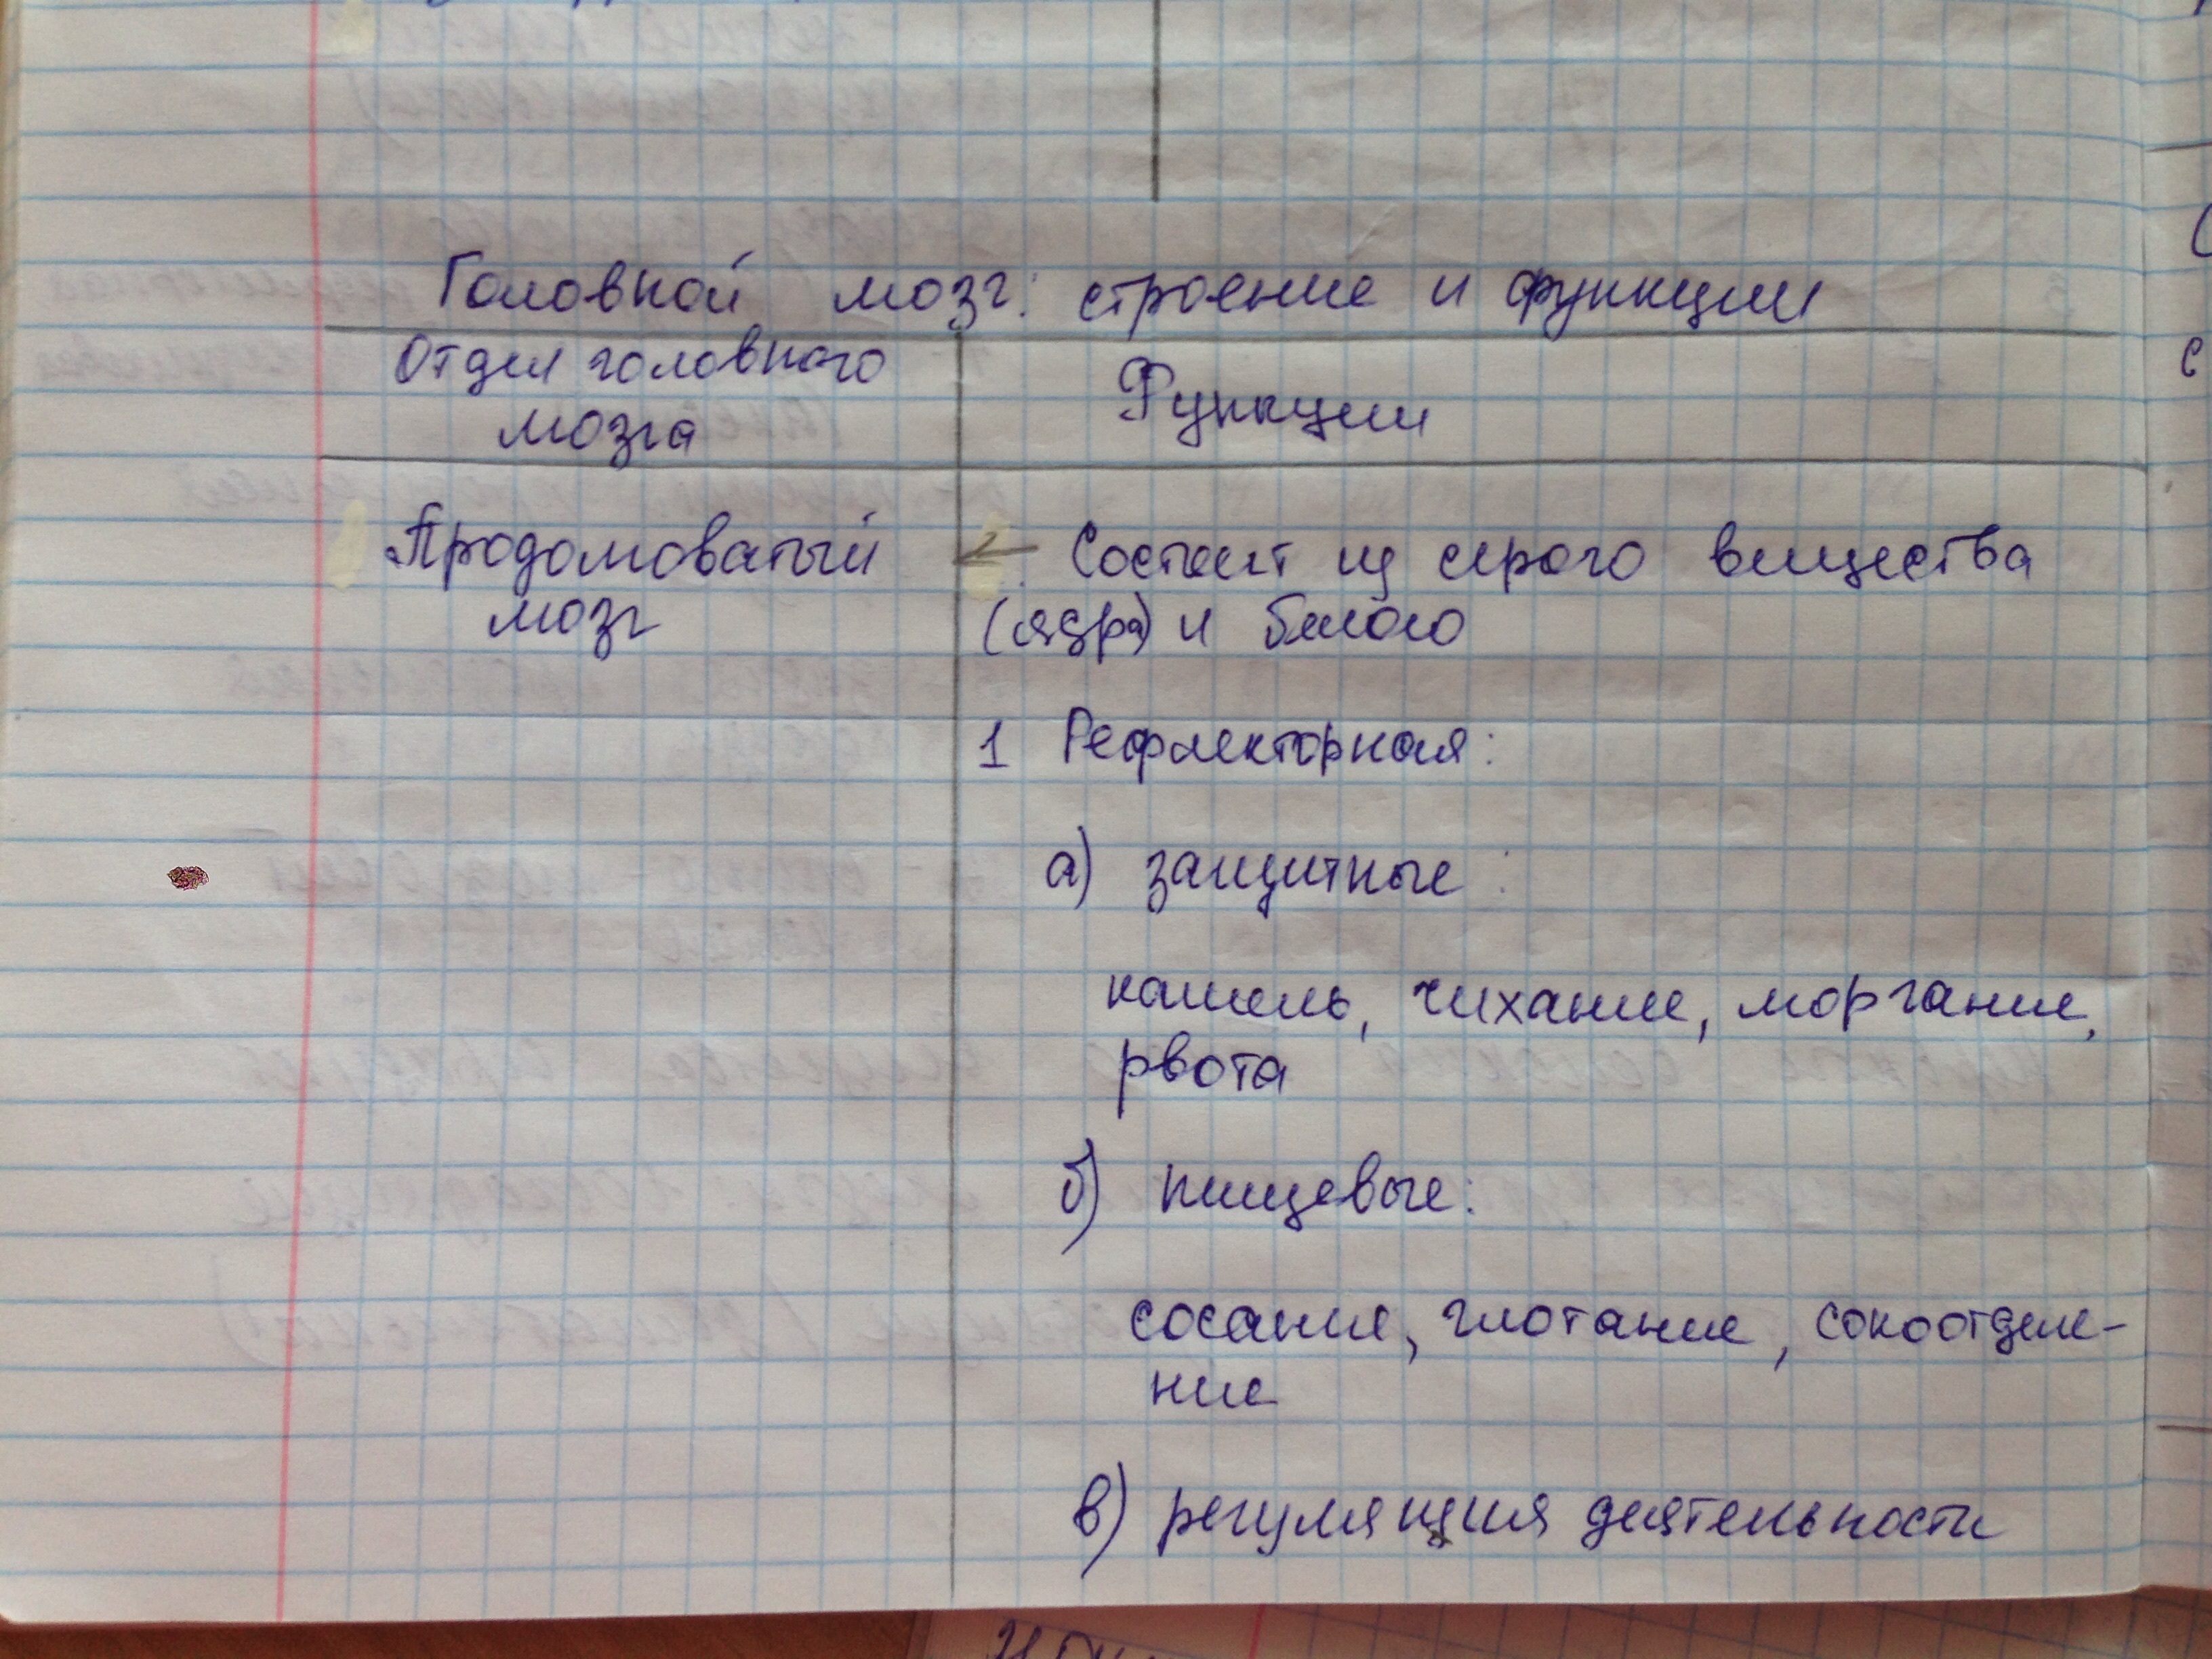 Головной мозг: строение и функции
Отдел головного
мозга
Функции
Продолговатый
мозг
Состоит из серого вещества
(ядра) и белого
1 Рефлекторная:
а) защитные:
кашель, чихание, моргание,
рвота
б) пищевые:
сосание, глотание, сокоотделе-
ние
в) регуляция деятельности